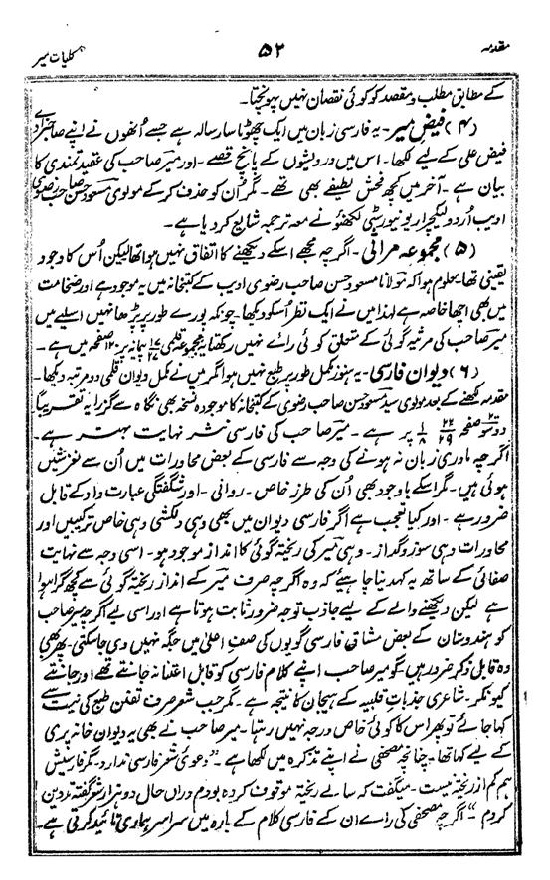 مقدمہ ۵۲ کلیات میر
کے مطابق مطلب و مقصد کو کوئی نقصان نہیں پہونچتا۔
(۴) فیض میر۔ یہ فارسی زبان میں ایک چھوٹا سا رسالہ ہے جسے اُنھوں نے اپنے صاحبزادے
فیض علی کے لیے لکھا۔ اس میں درویشوں کے پانچ قصے۔ اور میر صاحب کی عقیدتمندی کا
بیان ہے۔ آخر میں کچھ فحش لطیفے بھی تھے۔ مگر اُن کو حذف کر کے مولوی مسعود حسن صاحب رضوی
ادیب اُردو لیکچرار یونیورسٹی لکھنؤ نے معہ ترجمہ شایع کر دیا ہے۔
(۵) مجموعہ مراثی۔ اگرچہ مجھے اسکے دیکھنے کا اتفاق نہیں ہوا تھا لیکن اُس کا وجود
یقینی تھا۔ معلوم ہوا کہ مولانا مسعود حسن صاحب رضوی ادیب کے کتبخانہ میں یہ موجود ہے اور ضخامت
میں بھی اچھا خاصہ ہے لہٰذا میں نے ایک نظر اُسکو دیکھا۔ چونکہ پورے طور پر پڑھا نہیں اسلیے میں
میر صاحب کی مرثیہ گوئی کے متعلق کوئی رائے نہیں رکھتا۔ یہ مجموعہ قلمی پیمانہ پر ۱۲۰ صفحہ میں ہے۔
(۶) دیوان فارسی۔ یہ ہنوز مکمل طور پر طبع نہیں ہوا مگر میں نے مکمل دیوان قلمی دو مرتبہ دیکھا۔
مقدمہ لکھنے کے بعد مولوی سید مسعود حسن صاحب رضوی کے کتبخانہ کا موجودہ نسخہ بھی نگاہ سے گزرا یہ تقریباً
دو سو صفحہ ۲۲/۲۹ ۱/۸ پر ہے۔ میر صاحب کی فارسی نثر نہایت بہتر ہے۔
اگرچہ مادری زبان نہ ہونے کی وجہ سے فارسی کے بعض محاورات میں اُن سے لغزشیں
ہوئی ہیں۔ مگر اسکے باوجود بھی اُن کی طرز خاص۔ روانی۔ اور شگفتگی عبارت داد کے قابل
ضرور ہے۔ اور کیا تعجب ہے اگر فارسی دیوان میں بھی وہی دلکشی وہی خاص ترکیبیں اور
محاورات وہی سوز و گداز۔ وہی میر کی ریختہ گوئی کا انداز موجود ہو۔ اسی وجہ سے نہایت
صفائی کے ساتھ یہ کہدینا چاہئے کہ وہ اگرچہ صرف میر کے انداز ریختہ گوئی سے کچھ گرا ہوا
ہے لیکن دیکھنے والے کے لیے جاذب توجہ ضرور ثابت ہوتا ہے اور اسی لیے اگرچہ میر صاحب
کو ہندوستان کے بعض مشاق فارسی گویوں کی صف اعلیٰ میں جگہ نہیں دی جاسکتی۔ پھر بھی
وہ قابل ذکر ضرور ہیں۔ گو میر صاحب اپنے کلام فارسی کو قابل اعتنا نہ جانتے تھے اور جانتے
کیونکر۔ شاعری جذبات قلبیہ کے ہیجان کا نتیجہ ہے۔ مگر جب شعر صرف تفنن طبع کی نیت سے
کہا جائے تو پھر اس کا کوئی خاص درجہ نہیں رہتا۔ میر صاحب نے بھی یہ دیوان خانہ پری
کے لیے کہا تھا۔ چنانچہ مصحفی نے اپنے تذکرہ میں لکھا ہے۔ "دعوی شعر فارسی ندارد۔ مگر فارسیش
ہم کم از ریختہ نیست۔ میگفت کہ سالے ریختہ موقوف کردہ بودم دراں حال دو ہزار شعر گفتہ تدوین
کردم" اگرچہ مصحفی کی رائے ان کے فارسی کلام کے بارہ میں سراسر ہماری تائید کرتی ہے۔